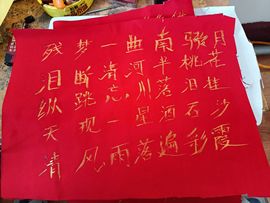 残梦一曲南骏月
泪断清河半桃花
纵跳忘川落泪挂
天现一星酒石沙
清风雨落遍彩霞